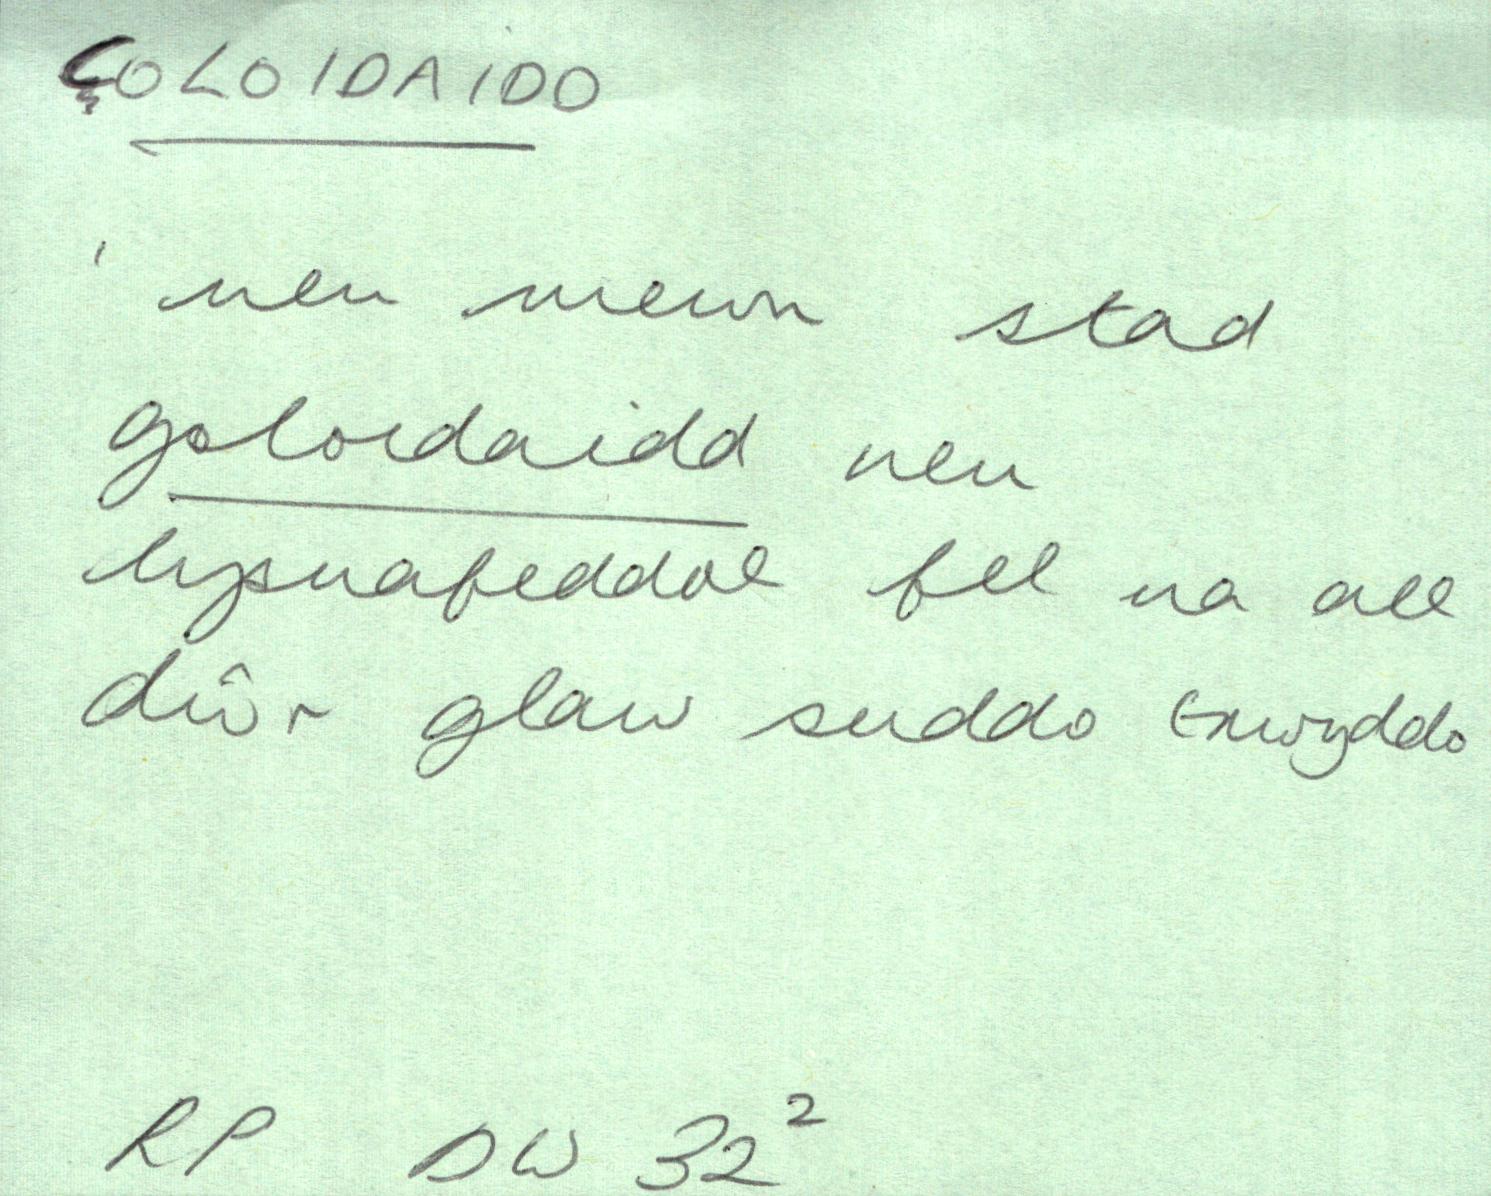 COLOIDAIDD
' neu mewn stad
goloidaidd neu
lysnafeddol fel na all
dŵr glaw suddo trwyddo
RP DW 32²